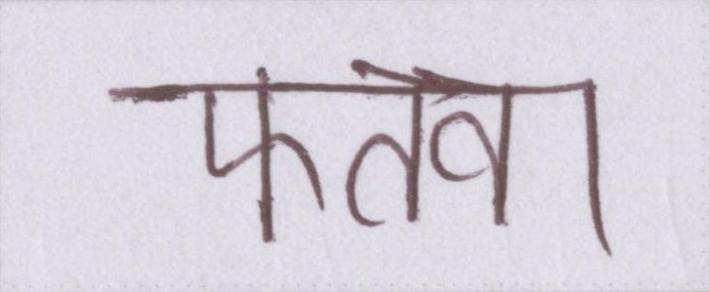 फतवा